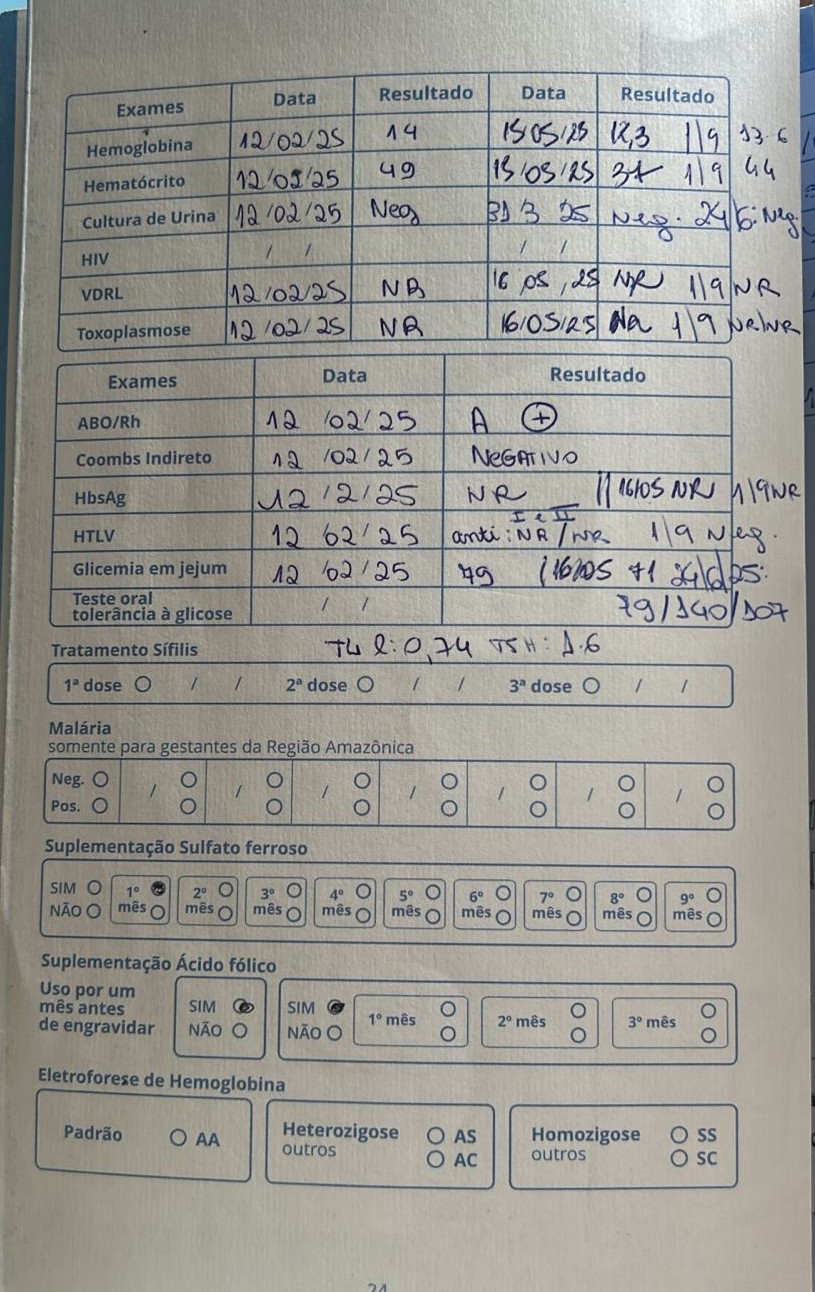 Exames Data Resultado Data Resultado
Hemoglobina 12/02/25 14 15/05/25 12,3 1/9 13.6
Hematócrito 12/02/25 49 15/05/25 37 1/9 44
Cultura de Urina 12/02/25 Neg 31 3 25 Neg. 24/6: Neg.
HIV / / / /
VDRL 12/02/25 NR 16/05/25 NR 1/9 NR
Toxoplasmose 12/02/25 NR 16/05/25 1/9 NR/NR
Exames Data Resultado
ABO/Rh 12/02/25 A +
Coombs Indireto 12/02/25 NEGATIVO
HbsAg 12/2/25 NR // 16/05 NR 1/9 NR
I e II
HTLV 12 02/25 anti: NR/NR 1/9 Neg.
Glicemia em jejum 12 02/25 79 (16/05 71 24/6/25:
Teste oral
tolerância à glicose / / 79/140/107
Tratamento Sífilis T4 l: 0,74 TSH: 1.6
1ª dose / / 2ª dose / / 3ª dose / /
Malária
somente para gestantes da Região Amazônica
Neg. / / / / / / /
Pos.
Suplementação Sulfato ferroso
SIM 1º 2º 3º 4º 5º 6º 7º 8º 9º
NÃO mês mês mês mês mês mês mês mês mês
Suplementação Ácido fólico
Uso por um
mês antes
de engravidar
SIM
NÃO
SIM
NÃO
1º mês 2º mês 3º mês
Eletroforese de Hemoglobina
Padrão AA
Heterozigose AS
outros AC
Homozigose SS
outros SC